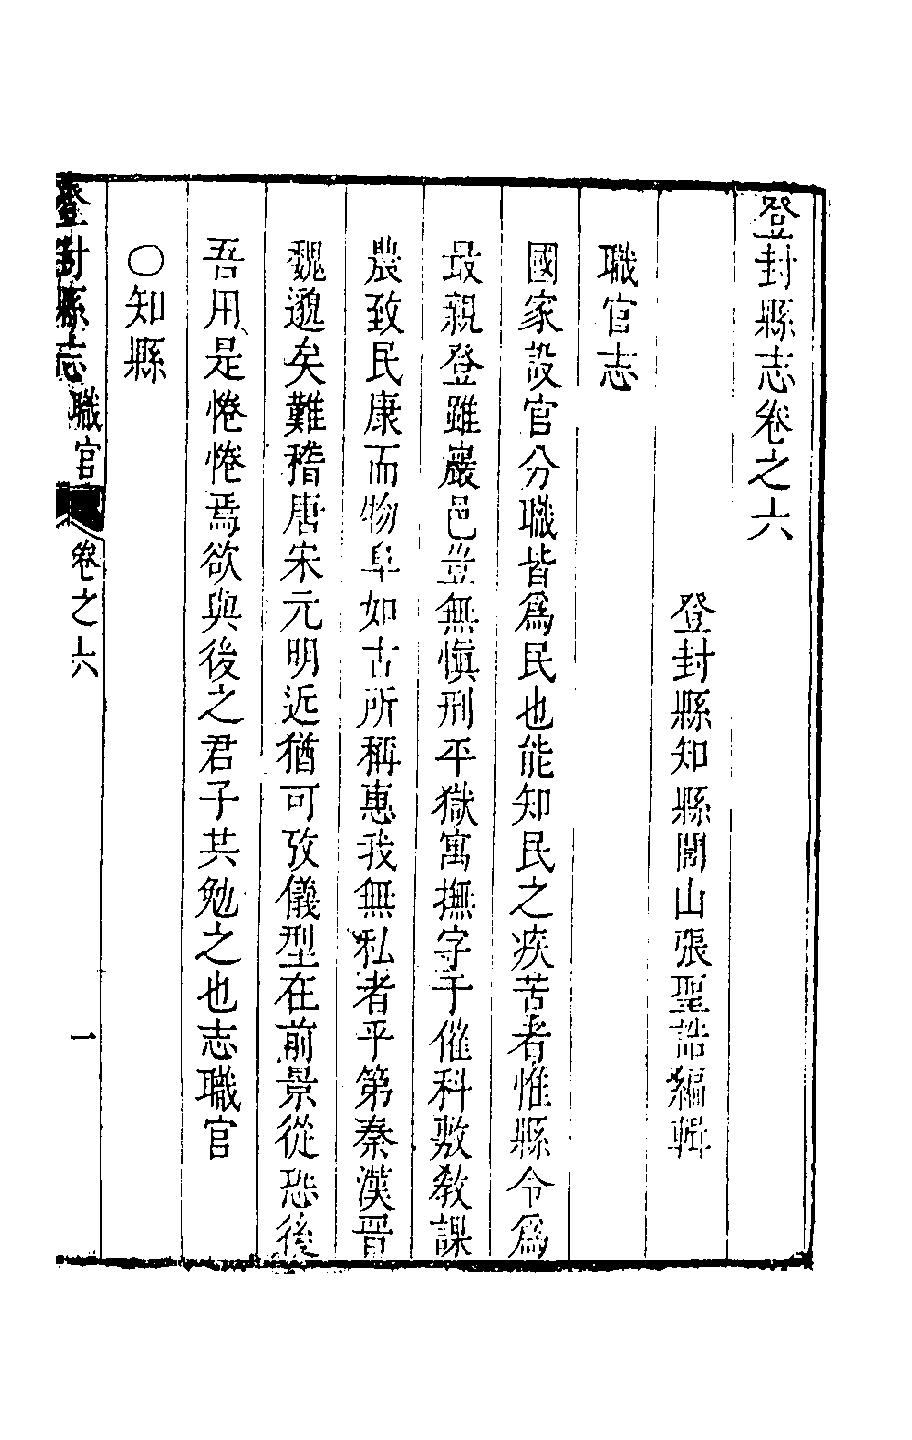 登封縣志卷之六
登封縣知縣關山張聖誥編輯
職官志
國家設官分職皆爲民也能知民之疾苦者惟縣令爲
最親登雖巖邑豈無愼刑平獄寓撫字于催科敷教課
農致民康而物阜如古所稱惠我無私者乎第秦漢晉
魏邈矣難稽唐宋元明近猶可攷儀型在前景從恐後
吾用是惓惓焉欲與後之君子共勉之也志職官
〇知縣
登封縣志 職官 卷之六 一